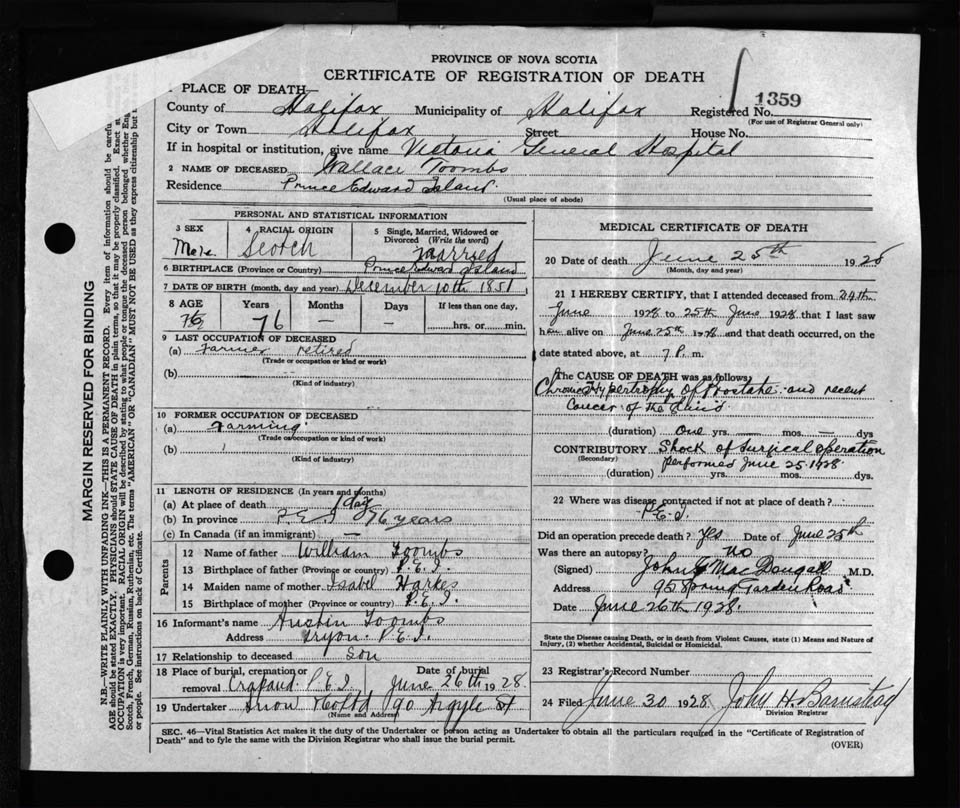 PROVINCE OF NOVA SCOTIA
CERTIFICATE OF REGISTRATION OF DEATH
1359
1 PLACE OF DEATH
County of Halifax Municipality of Halifax Registered No.
(For use of Registrar General only)
City or Town Halifax Street House No.
If in hospital or institution, give name Victoria General Hospital
2 NAME OF DECEASED Wallace Toombs
Residence Prince Edward Island.
(Usual place of abode)
PERSONAL AND STATISTICAL INFORMATION
3 SEX 4 RACIAL ORIGIN 5 Single, Married, Widowed or
Divorced (Write the word)
Male Scotch Married
6 BIRTHPLACE (Province or Country) Prince Edward Island
7 DATE OF BIRTH (month, day and year) December 10th 1851
8 AGE Years Months Days If less than one day,
76 — — hrs. or min.
9 LAST OCCUPATION OF DECEASED
(a) Farmer retired
(Trade or occupation or kind or work)
(b)
(Kind of industry)
10 FORMER OCCUPATION OF DECEASED
(a) Farming
(Trade or occupation or kind of work)
(b)
(Kind of industry)
11 LENGTH OF RESIDENCE (In years and months)
(a) At place of death 1 day
(b) In province P.E.I 76 years
(c) In Canada (if an immigrant) —
PARENTS
12 Name of father William Toombs
13 Birthplace of father (Province or country) P.E.I.
14 Maiden name of mother Isabel Harkes
15 Birthplace of mother (Province or country) P.E.I.
16 Informant's name Austin Toombs
Address Tryon P.E.I.
17 Relationship to deceased Son
18 Place of burial, cremation or Date of burial
removal Crapaud P.E.I June 26th 1928
19 Undertaker Snow & Co Ltd 90 Argyle St
(Name and Address)
MEDICAL CERTIFICATE OF DEATH
20 Date of death June 25th 1928
(Month, day and year)
21 I HEREBY CERTIFY, that I attended deceased from 24th
June 1928 to 25th June 1928 that I last saw
him alive on June 25th 1928 and that death occurred, on the
date stated above, at 7 P. m.
The CAUSE OF DEATH was as follows:
Chronic Hypertrophy of Prostate and recent
Cancer of the
(duration) One yrs. — mos. — dys
CONTRIBUTORY Shock of Surgical operation
(Secondary) performed June 25 1928
(duration) yrs. mos. dys
22 Where was disease contracted if not at place of death?
P.E.I.
Did an operation precede death? Yes Date of June 25th
Was there an autopsy? No
(Signed) John G MacDougall M.D.
Address 95 Spring Garden Road
Date June 26th 1928.
State the Disease causing Death, or in death from Violent Causes, state (1) Means and Nature of
Injury, (2) whether Accidental, Suicidal or Homicidal.
23 Registrar's Record Number
24 Filed June 30 1928 John H. Barnstead
Division Registrar
SEC. 46—Vital Statistics Act makes it the duty of the Undertaker or person acting as Undertaker to obtain all the particulars required in the "Certificate of Registration of
Death" and to fyle the same with the Division Registrar who shall issue the burial permit.
(OVER)
MARGIN RESERVED FOR BINDING
N.B.—WRITE PLAINLY WITH UNFADING INK—THIS IS A PERMANENT RECORD. Every item of information should be carefu
AGE should be stated EXACTLY. PHYSICIANS should STATE CAUSE OF DEATH in plain terms, so that it may be properly classified. Exact st
OCCUPATION is very important. RACIAL ORIGIN will be described by stating to what people or tongue the deceased person belonged whether Eng
Scotch, French, German, Russian, Ruthenian, etc. The terms "AMERICAN" OR "CANADIAN" MUST NOT BE USED as they express citizenship but n
or people. See instructions on back of Certificate.